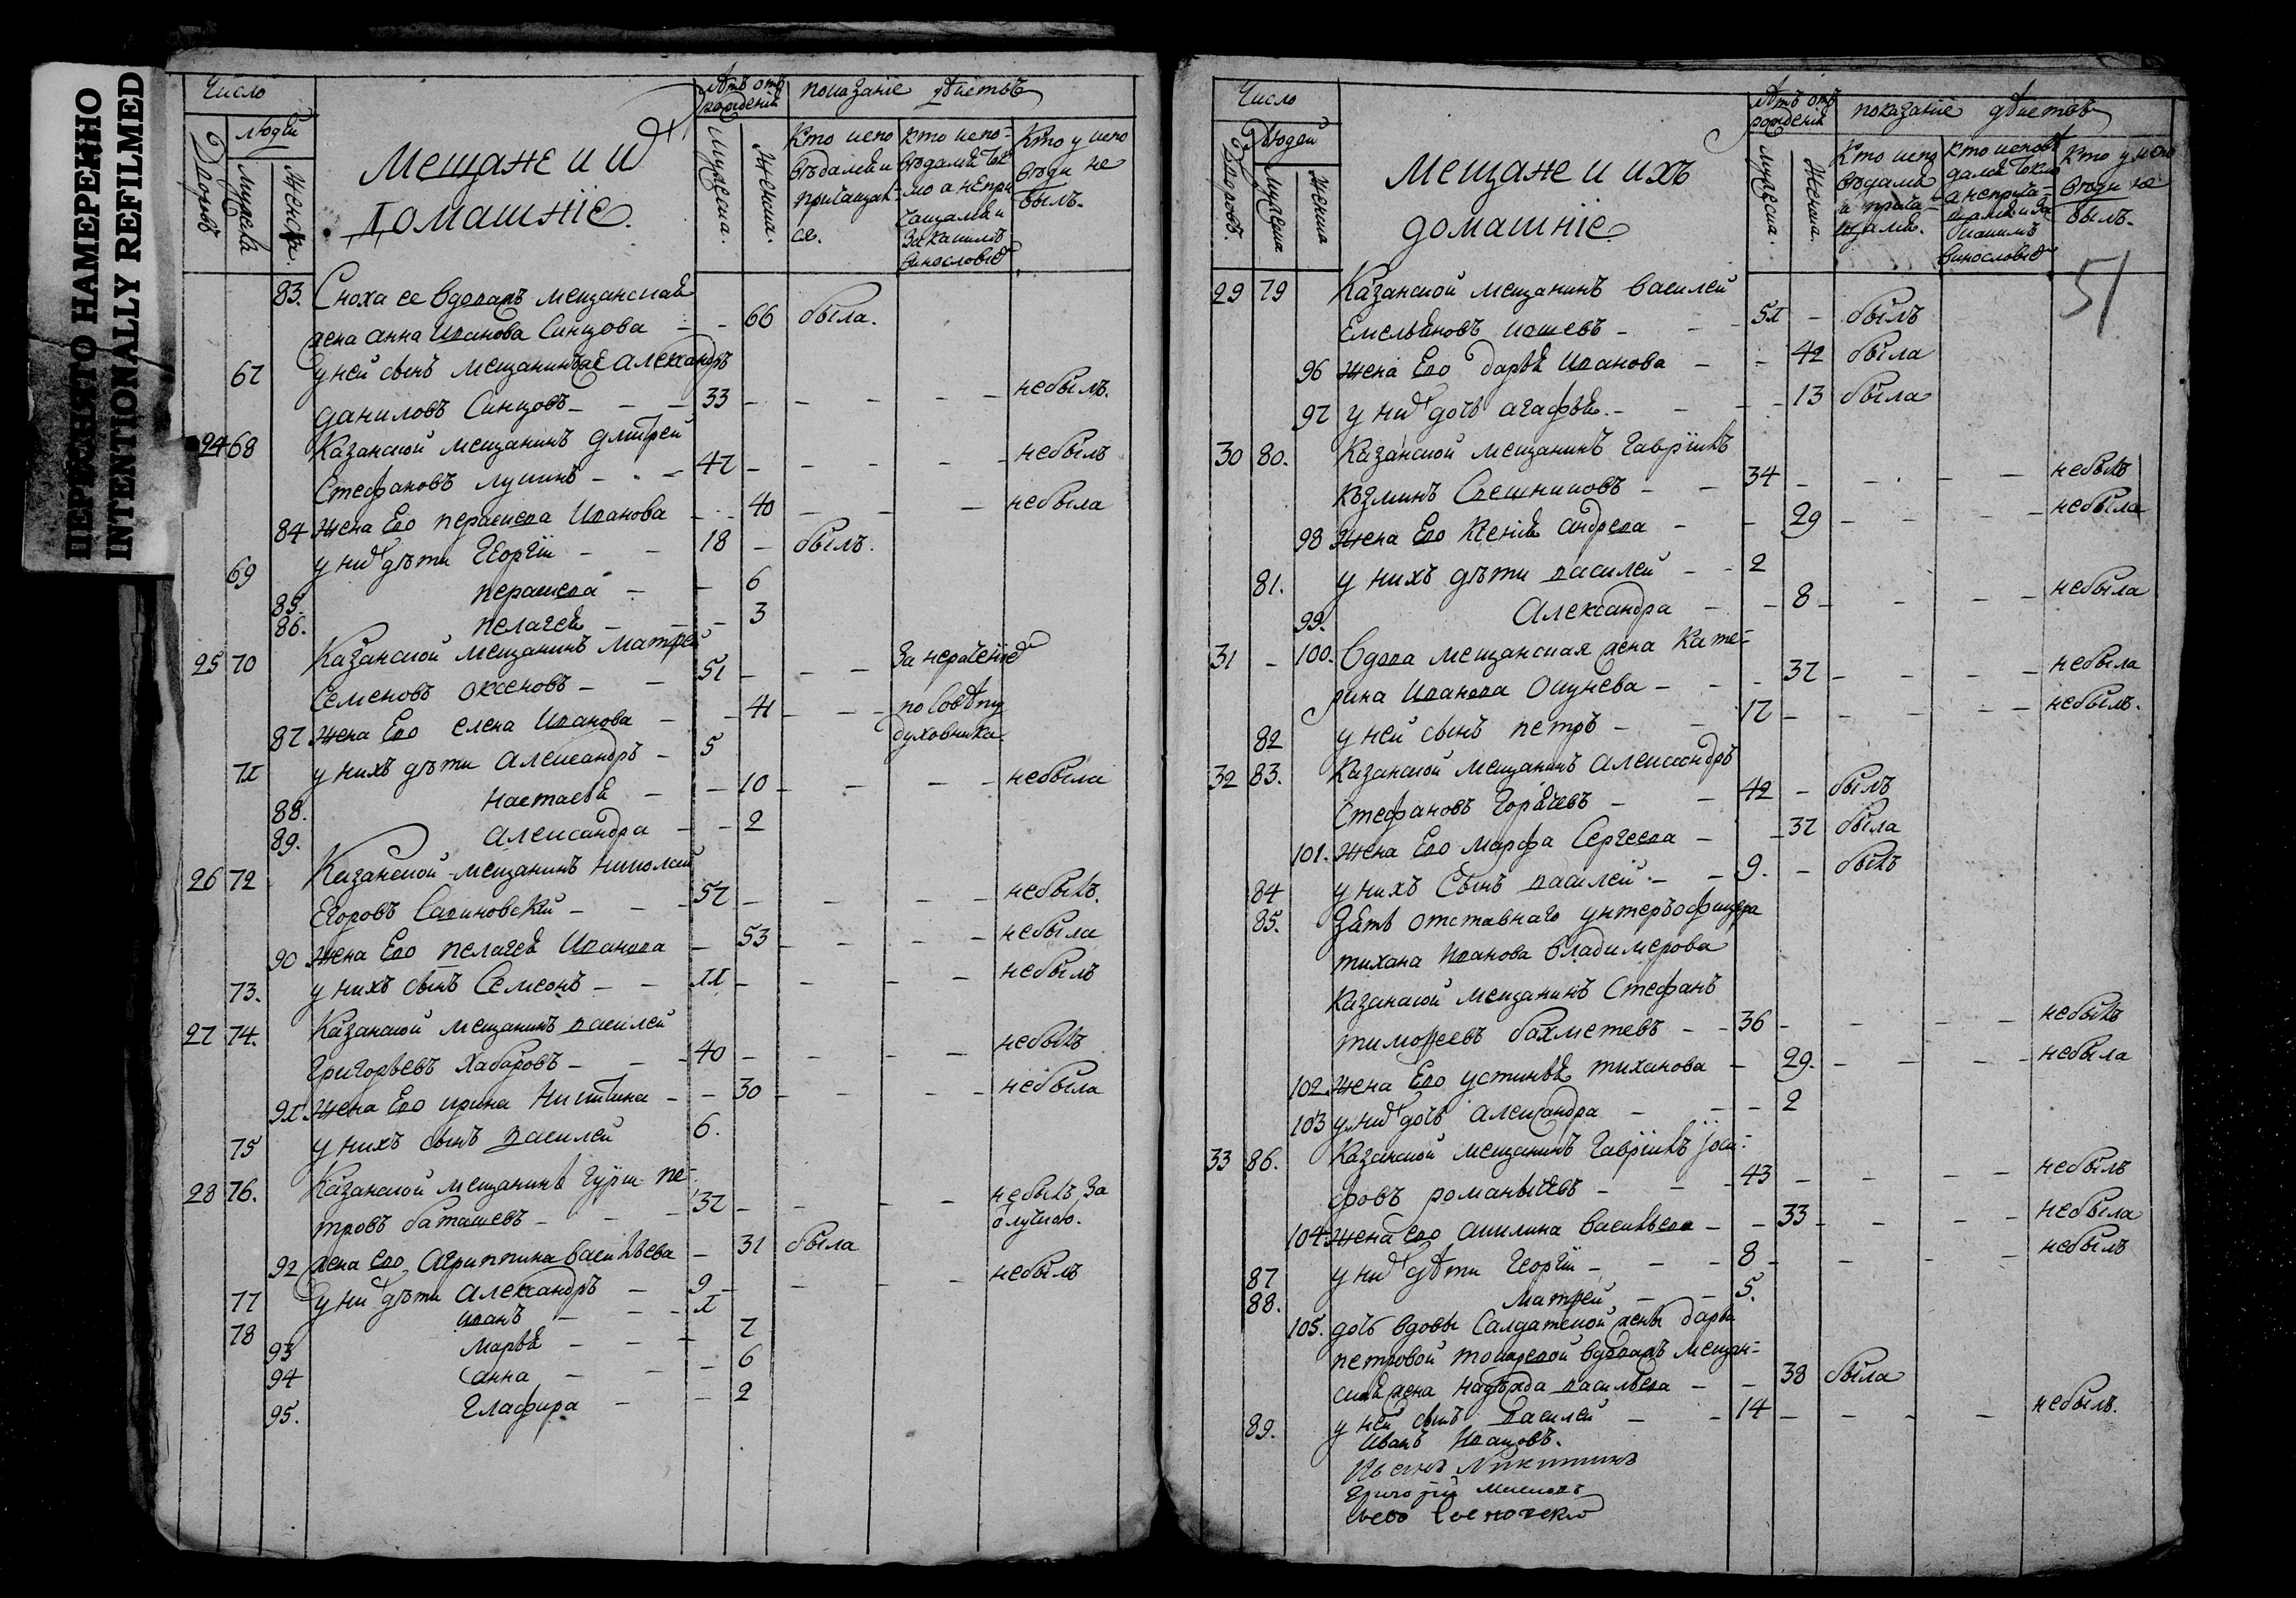 ПЕРЕСНЯТО НАМЕРЕННО
INTENTIONALLY REFILMED
Число
людей
Дворовъ
Мужеска
Женска.
Мещане и их
домашніе.
Лѣтъ отъ рожденія
Мужеска.
Женска.
показаніе дѣйствъ
Кто испо
вѣдался и
причащал
ся.
кто испо-
вѣдался ток
мо а непри
чащался и
за какимъ
винословіем
Кто у испо
вѣди не
былъ.
83. Сноха ее вдовая мещанская
жена анна Иванова Синцова - - 66 была.
67 у ней сынъ мещанинъ же александръ
даниловъ Синцовъ - - - 33 - - - - - небылъ.
24 68 Казанской мещанинъ дмитрей
Стефановъ лупинъ - - - 47 - - - - - небылъ
84 жена Его парасковa Иванова - - 40 - - - небыла
69 у них дѣти Георгіи - - 18 - былъ.
85. параскева - - 6
86. пелагея - - - 3
25 70 Казанской мещанинъ матфей
Семеновъ оксеновъ - - 51 - - - За нераченіем
87 жена Его елена Иванова - - 41 - - - по совѣту
духовника.
71 у нихъ дѣти александръ - 5
88. настасья - - 10 - - - - небыла
89. александра - - 2
26 72 Казанской мещанинъ николай
Егоровъ Савиновскій - - - 57 - - - - - небылъ.
90 жена Его пелагея Иванова - 53 - - - - небыла
73. у нихъ сынъ Семеонъ - - 11 - - - - небылъ
27 74. Казанской мещанинъ василей
Григорьевъ Хабаровъ - - - 40 - - - - небылъ
91 жена Его ирина Никитина - - 30 - - - - небыла
75 у нихъ сынъ василей 6.
28 76. Казанской мещанинъ гурій пе-
тровъ баташевъ - - - 37 - - - - небылъ за
отлучкою.
92 жена его Агриппина васильева - 31 была
77 у них дѣти Александръ - 9 - - - - небылъ
78 иванъ - - - 1
93 марья - - - 7
94 анна - - - 6
95. Глафира - - 2
Число
людей
Дворовъ.
Мужеска
Женска
Мещане и ихъ
домашніе
Лѣтъ отъ рожденія
мужеска.
Женска.
показаніе дѣйствъ
Кто испо
вѣдался
и прича-
щался.
Кто исповѣ
дался токмо
а неприча-
щался и за
какимъ
винословіем
Кто у испо
вѣди не
былъ.
51
29 79 Казанской мещанинъ василей
Емельяновъ - - 51 - былъ
96 жена Его дарья Иванова - - 42 была
97 у них дочь агафья. - - - 13 была
30 80. Казанской мещанинъ Гавріилъ
козминъ Свешниковъ - - 34 - - - - небылъ
98 жена Его Ксенія андреева - - 29 - - - небыла
81. у нихъ дѣти василей - - 2
99. Александра - - 8 - - - - небыла
31 - 100. вдова мещанская жена Кате-
рина Иванова Окунева - - - 37 - - - - небыла
82 у ней сынъ петръ - - 17 - - - - - небылъ.
32 83. Казанской мещанинъ александръ
Стефановъ Горячевъ - - 42 - былъ
101. жена Его марфа Сергеева - - 37 была
84 у нихъ сынъ василей - - 9. - былъ
85. Зять отставнаго унтеръофицера
тихана Иванова владимерова
Казанской мещанинъ Стефанъ
тимофеевъ бахметевъ - - 36 - - - - небылъ
102. жена Его устинья тиханова - 29. - - - - небыла
103 у них дочь александра - - - 2
33 86. Казанской мещанинъ Гавріилъ іоси-
фовъ романычевъ - - - 43 - - - - небылъ
104. жена его акилина васильева - - 33 - - - - небыла
87 у них дѣти Георгіи - - - 8 - - - - небылъ
88. матфей - - 5.
105. дочь вдовы Салдатской жены дарьи
петровой токаревой вдовая мещан-
ская жена надежда васильева - - 38 была
89. у ней сынъ василей - - 14 - - - - небылъ.
Иванъ Ивановъ.
Иванъ Никитинъ
Григорій